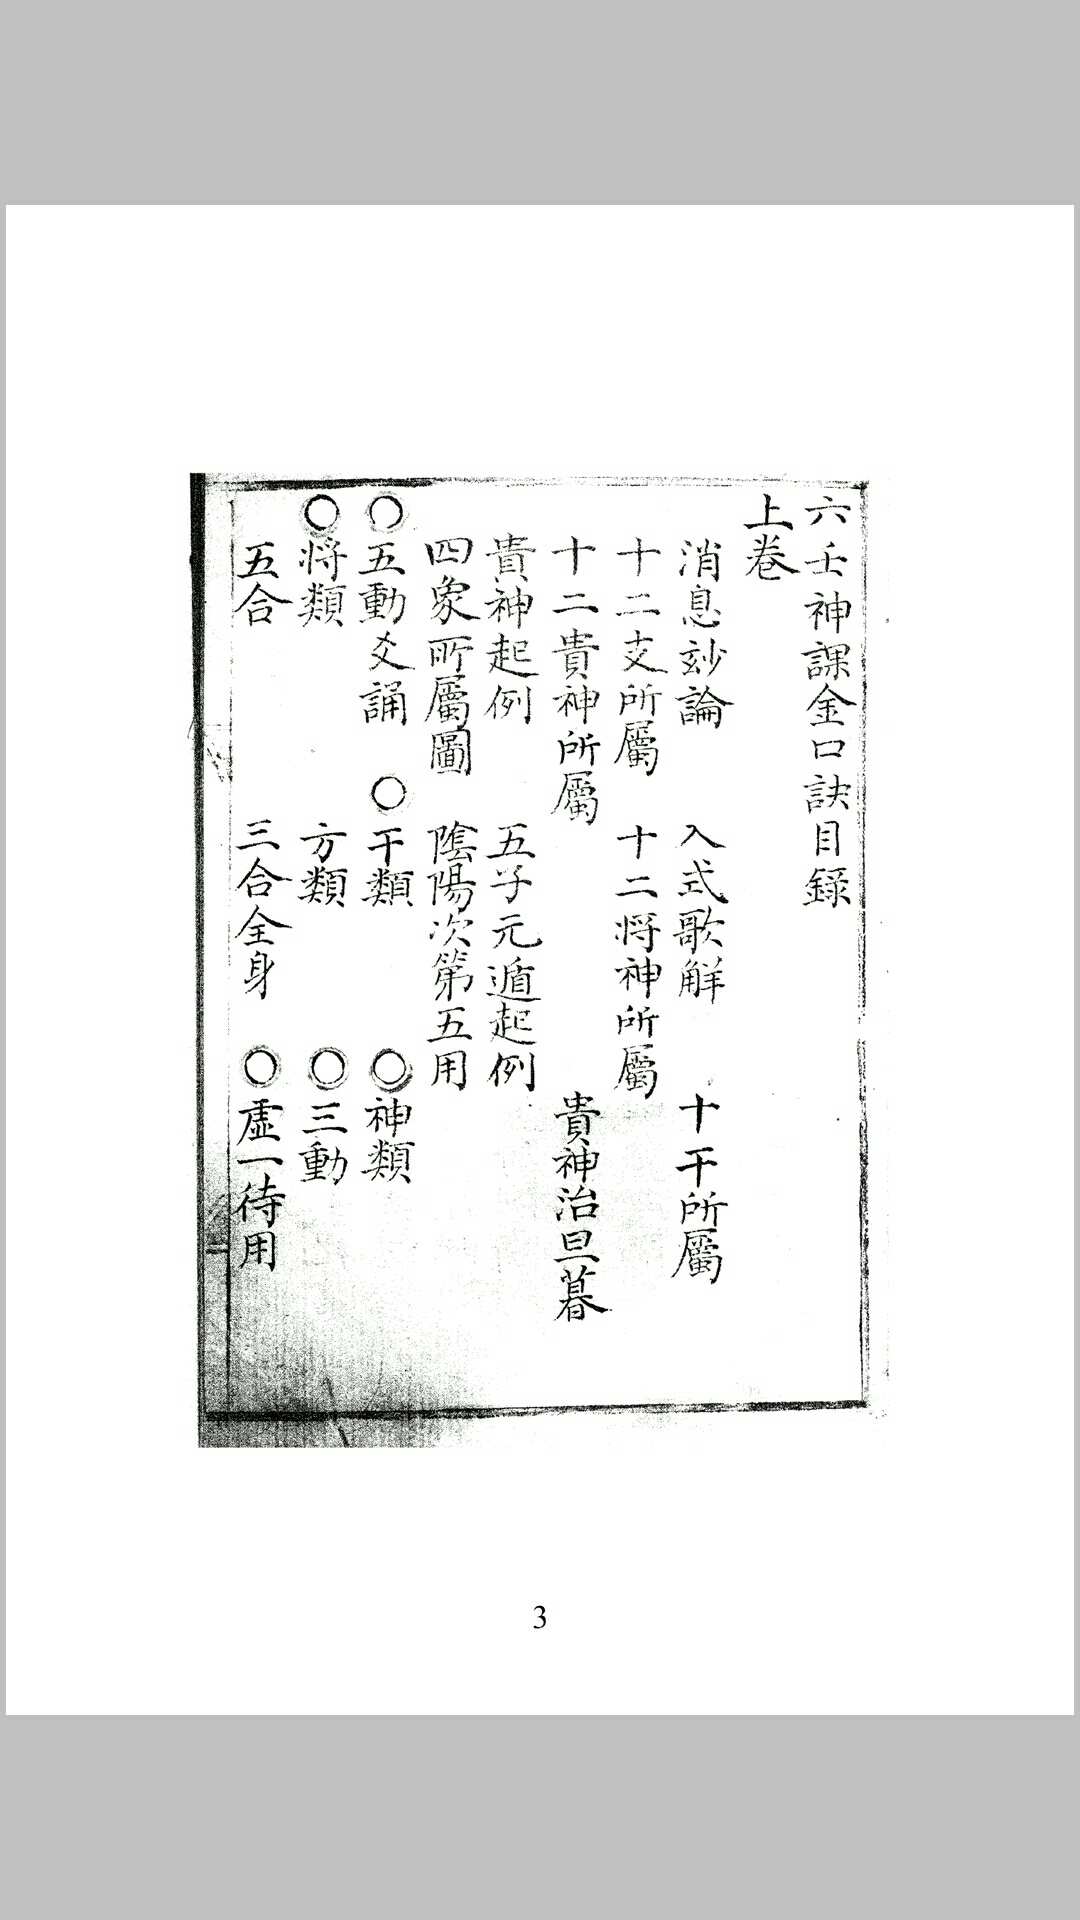 六壬神課金口訣目錄
上卷
消息玅論 入式歌觧 十干所屬
十二支所屬 十二将神所屬
十二貴神所屬 貴神治旦暮
貴神起例 五子元遁起例
四象所屬圖 陰陽次第五用
○五動爻誦 ○干類 ○神類
○将類 方類 ○三動
五合 三合全身 ○虛一待用
3